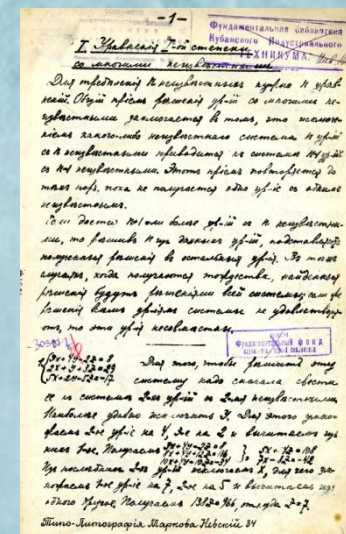 - 1 -
Фундаментальная библиотека
Кубанского Индустриального
ТЕХНИКУМА.
I. Уравненія I-ой степени
со многими неизвѣстными.
Для опредѣленія n неизвѣстныхъ нужно n урав-
неній. Общій пріемъ рѣшенія ур-ій со многими не-
извѣстными, заключается въ томъ, что
какого-либо неизвѣстнаго система n ур-ій
съ n неизвѣстными приводится къ системѣ n-1 ур-ій
съ n-1 неизвѣстными. Этотъ пріемъ повторяется до
тѣхъ поръ, пока не получается одно ур-іе съ однимъ
неизвѣстнымъ.
Если дается n+1 или болѣе ур-ій съ n неизвѣстны-
ми, то рѣшивъ n изъ данныхъ ур-ій, подставляютъ
полученныя рѣшенія въ остальныя ур-ія. Въ тѣхъ
случаяхъ, когда получаются тождества, найденныя
рѣшенія будутъ рѣшеніями всей системы; если же
рѣшенія системы не удовлетворя-
ютъ, то эти ур-ія несовмѣстны.
Фундаментальный фонд
Для того, чтобы рѣшить эту
систему надо сначала свести
ее къ системѣ 2-хъ ур-ій съ 2-мя неизвѣстными.
Наиболѣе удобно исключить y. Для этого умно-
жаемъ 2-ое ур-іе на 4, 3-е на 2 и вычитаемъ изъ
нихъ 1-ое. Получаемъ
Изъ послѣднихъ 2-хъ ур-ій исключаемъ x, для чего умно-
жаемъ 1-ое ур-іе на 7, 2-ое на 5 и вычитаемъ изъ
одного другое. Получаемъ 138z=966, откуда z=7.
Типо-Литографія Маркова Невскій 34